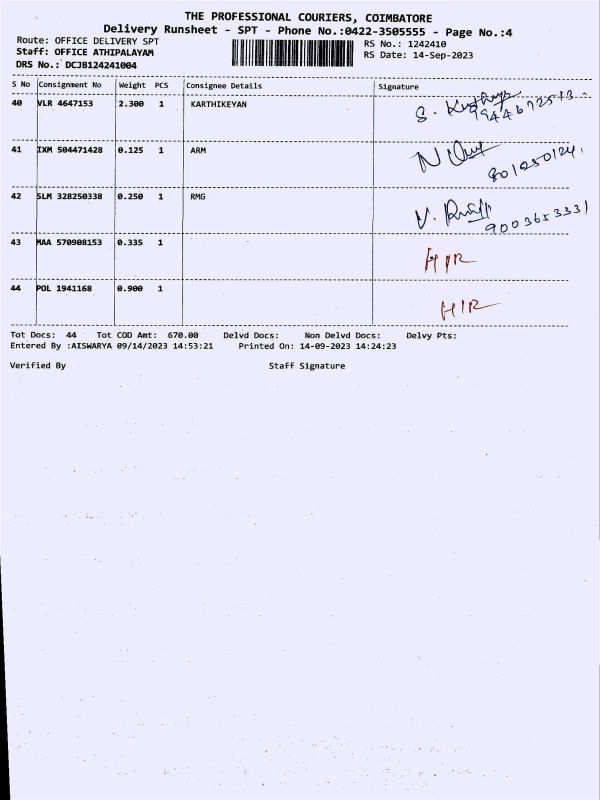 THE PROFESSIONAL COURIERS, COIMBATORE
Delivery Runsheet - SPT - Phone No.:0422-3505555 - Page No.:4
Route: OFFICE DELIVERY SPT RS No.: 1242410
Staff: OFFICE ATHIPALAYAM RS Date: 14-Sep-2023
DRS No.: DCJB124241004
S No Consignment No Weight PCS Consignee Details Signature
40 VLR 4647153 2.300 1 KARTHIKEYAN
41 IXM 504471428 0.125 1 ARM
801250124.
42 SLM 328250338 0.250 1 RMG
9003653331
43 MAA 570908153 0.335 1
44 POL 1941168 0.900 1
Tot Docs: 44 Tot COD Amt: 670.00 Delvd Docs: Non Delvd Docs: Delvy Pts:
Entered By :AISWARYA 09/14/2023 14:53:21 Printed On: 14-09-2023 14:24:23
Verified By Staff Signature